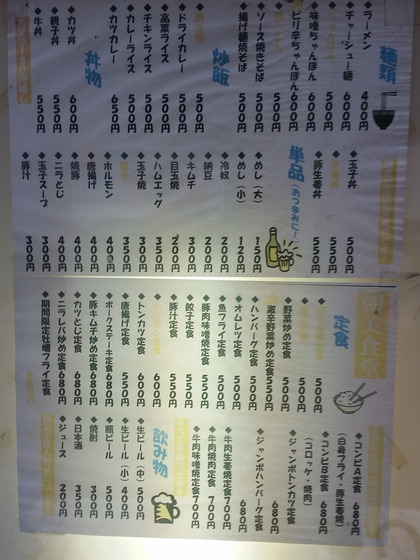 麺類
◆ラーメン 400円
◆チャーシュー麺 600円
◆味噌ちゃんぽん 600円
◆ピリ辛ちゃんぽん 600円
◆ソース焼きそば 500円
◆揚げ麺焼そば 500円
炒飯
500円
◆ドライカレー 500円
◆高菜ライス 500円
◆チキンライス 500円
◆カレーライス 500円
◆カツカレー 650円
丼物
◆カツ丼 600円
◆親子丼 550円
◆牛丼 550円
◆玉子丼 500円
550円
◆豚生姜丼 550円
単品(おつまみに!)
◆めし(大) 150円
◆めし(小) 120円
◆冷奴 200円
◆納豆 200円
◆キムチ 300円
◆目玉焼 200円
◆ハムエッグ 350円
◆玉子焼 300円
350円
◆ホルモン 400円
◆唐揚げ 400円
◆焼豚 400円
◆ニラとじ 400円
◆玉子スープ 300円
◆豚汁 300円
定食
500円
500円
◆野菜炒め定食 500円
◆激辛野菜炒め定食 550円
◆ハンバーグ定食 550円
◆オムレツ定食 500円
◆魚フライ定食 500円
◆豚肉味噌焼定食 550円
◆餃子定食 500円
◆豚汁定食 550円
600円
◆トンカツ定食 600円
◆唐揚げ定食 550円
◆ポークステーキ定食 680円
◆豚キムチ炒め定食 680円
◆カツとじ定食 680円
◆ニラレバ炒め定食 680円
◆期間限定牡蠣フライ定食
◆コンビA定食 680円
(白身フライ・豚生姜焼)
◆コンビB定食 680円
(コロッケ・焼肉)
◆ジャンボトンカツ定食 680円
◆ジャンボハンバーグ定食 680円
◆牛肉生姜焼定食 700円
◆牛肉焼肉定食 700円
◆牛肉味噌焼定食 700円
飲み物
◆生ビール(中) 500円
◆生ビール(小) 400円
◆瓶ビール 500円
◆焼酎 300円
◆日本酒 350円
◆ジュース 200円